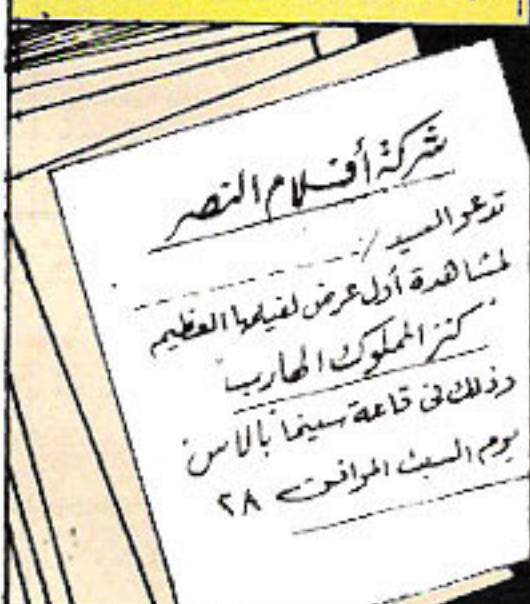 شركة أفلام النصر
تدعو السيد /
لمشاهدة أول عرض لفيلمها العظيم
"كنز المملوك الهارب"
وذلك فى قاعة سينما بالاس
يوم السبت الموافق ٢٨